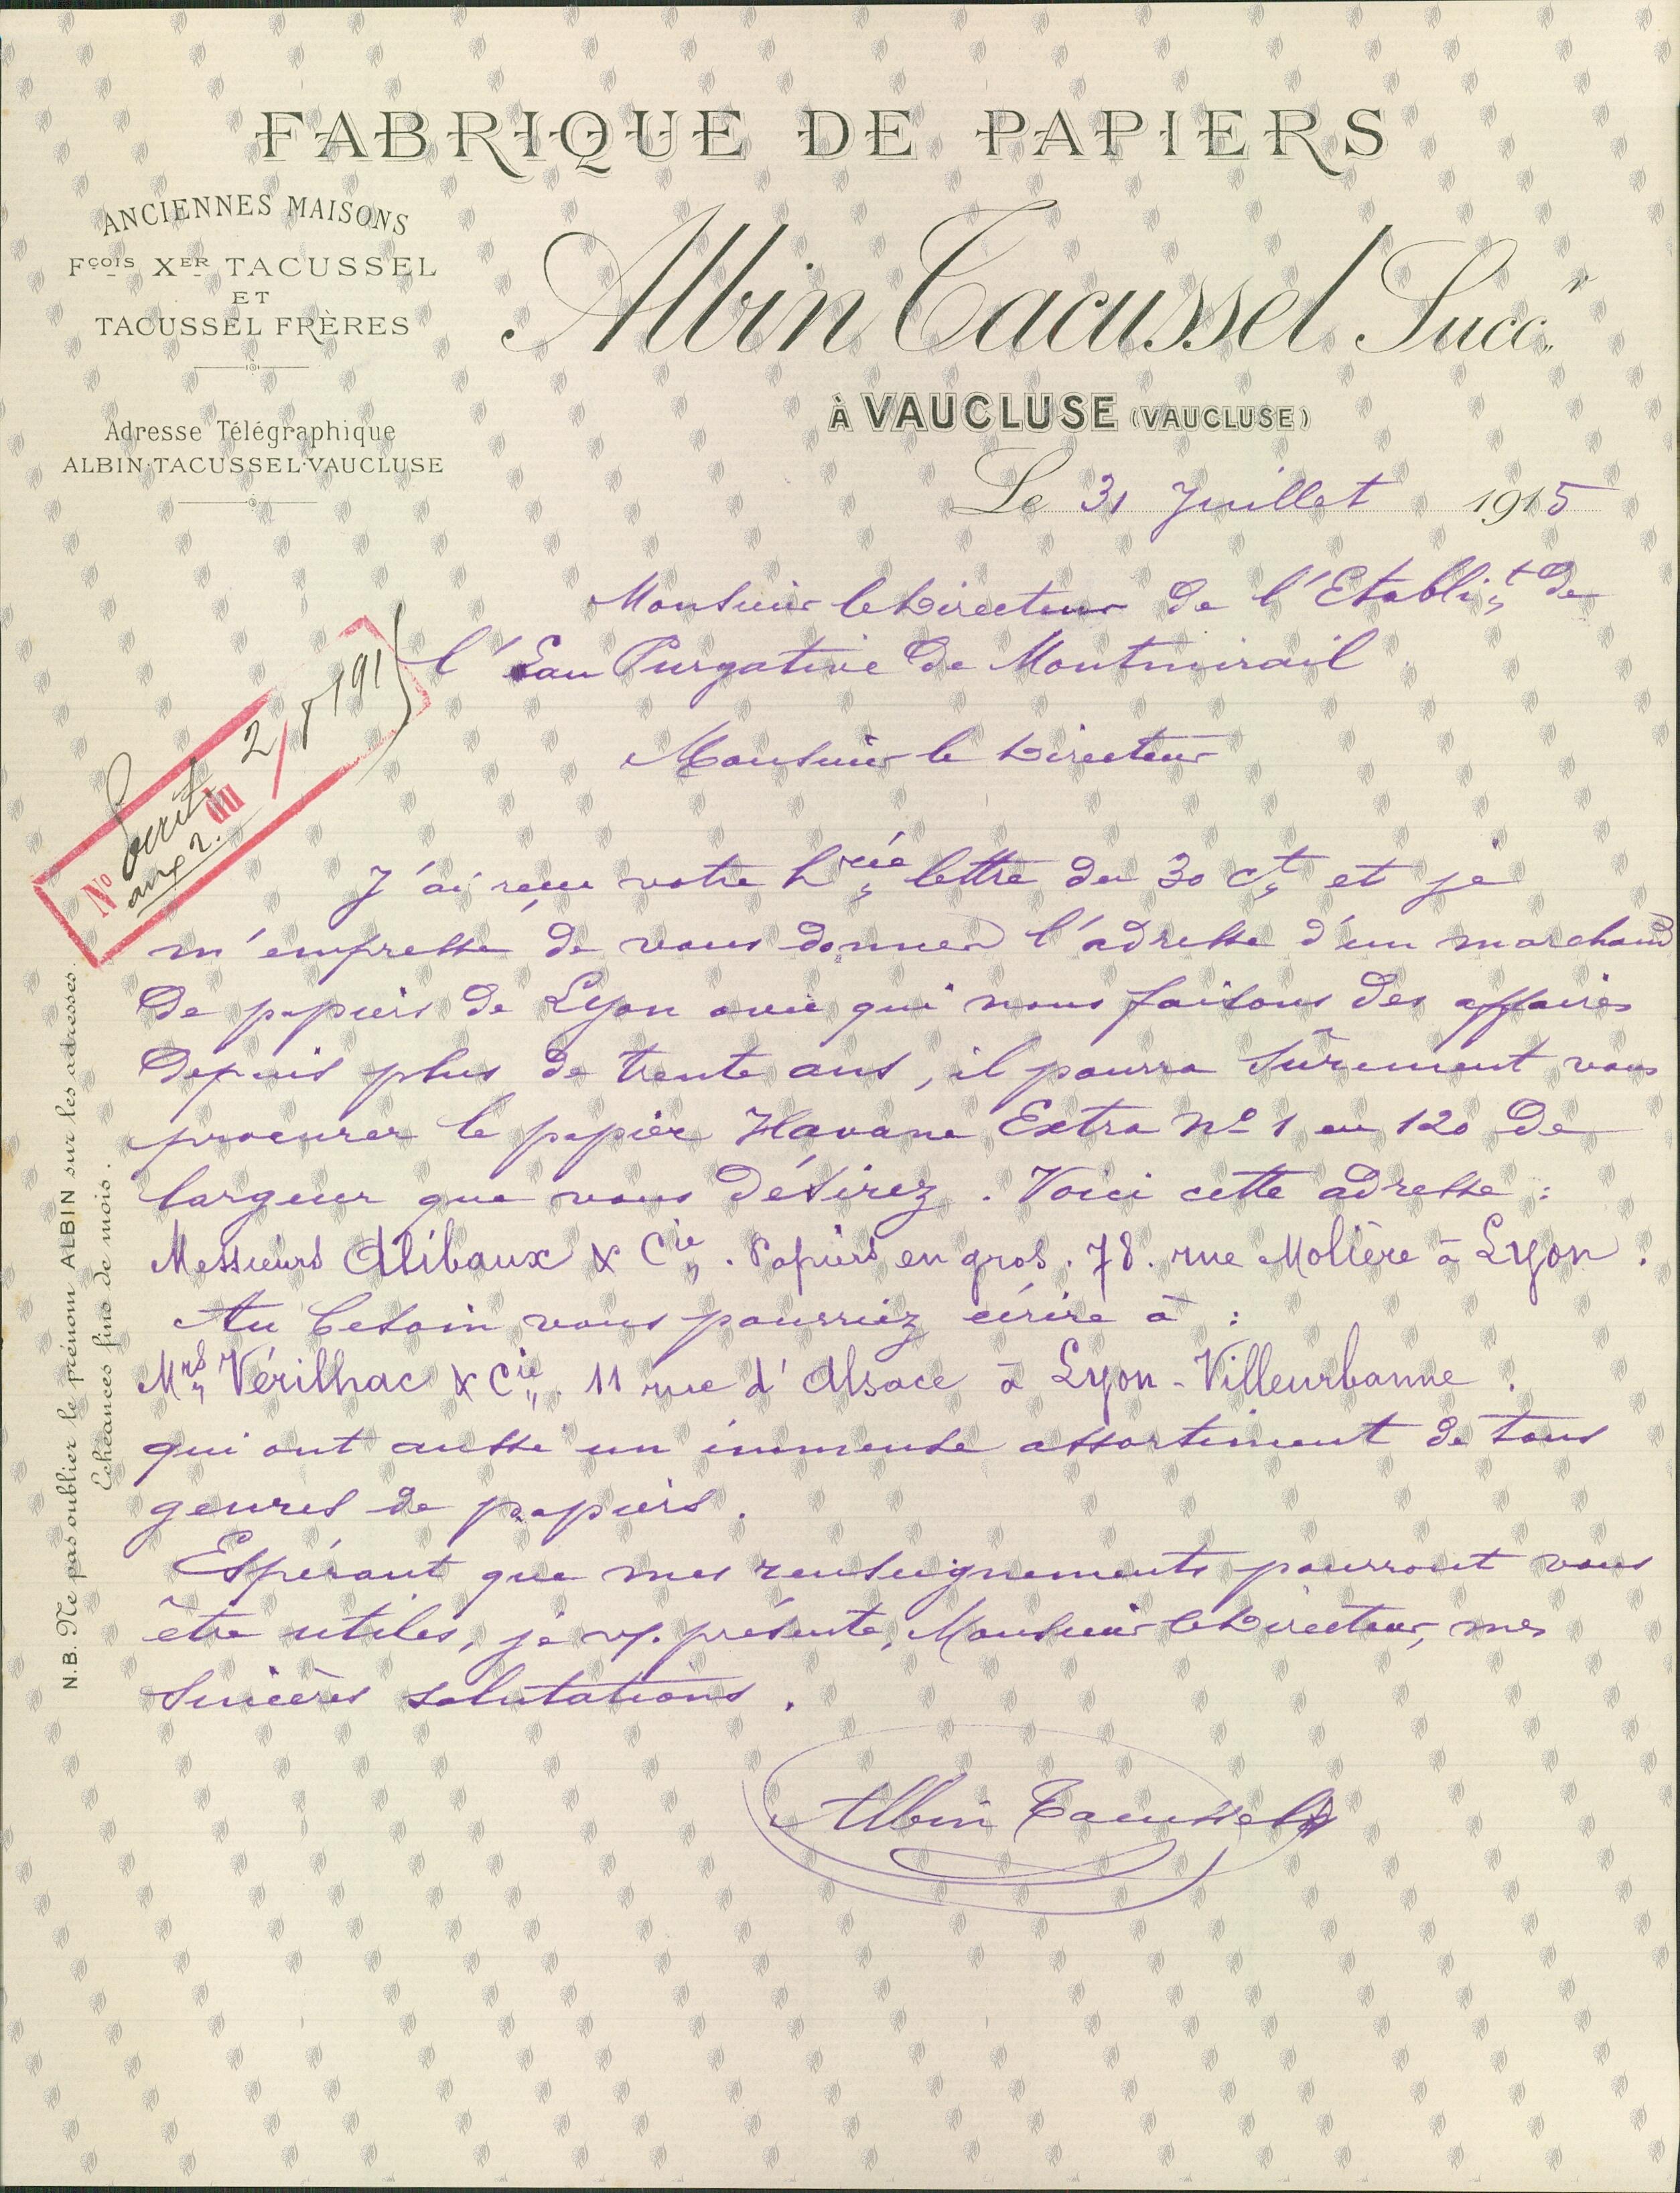 FABRIQUE DE PAPIERS
ANCIENNES MAISONS
Fçois Xer TACUSSEL
ET
TACUSSEL FRÈRES
Adresse Télégraphique
ALBIN·TACUSSEL·VAUCLUSE
Albin Tacussel Succr
À VAUCLUSE (VAUCLUSE)
Le 31 Juillet 1915
Monsieur le Directeur de l'Etablist de
l'Eau Purgative de Montmirail
Monsieur le Directeur
No Ecrit du 2/8 191
aux 2.
J'ai reçu votre hrée lettre du 30 ct et je
m'empresse de vous donner l'adresse d'un marchand
de papiers de Lyon avec qui nous faisons des affaires
depuis plus de trente ans, il pourra sûrement vous
procurer le papier Havane Extra No 1 en 120 de
largeur que vous désirez. Voici cette adresse :
Messieurs Alibaux & Cie. Papiers en gros. 78. rue Molière à Lyon.
Au besoin vous pourriez écrire à :
Mrs Vérilhac & Cie. 11 rue d'Alsace à Lyon-Villeurbanne.
qui ont aussi un immense assortiment de tous
genres de papiers.
Espérant que mes renseignements pourront vous
être utiles, je vs. présente, Monsieur le Directeur, mes
sincères salutations.
Albin Tacussel
N.B. Ne pas oublier le prénom ALBIN sur les adresses.
Echéances fins de mois.